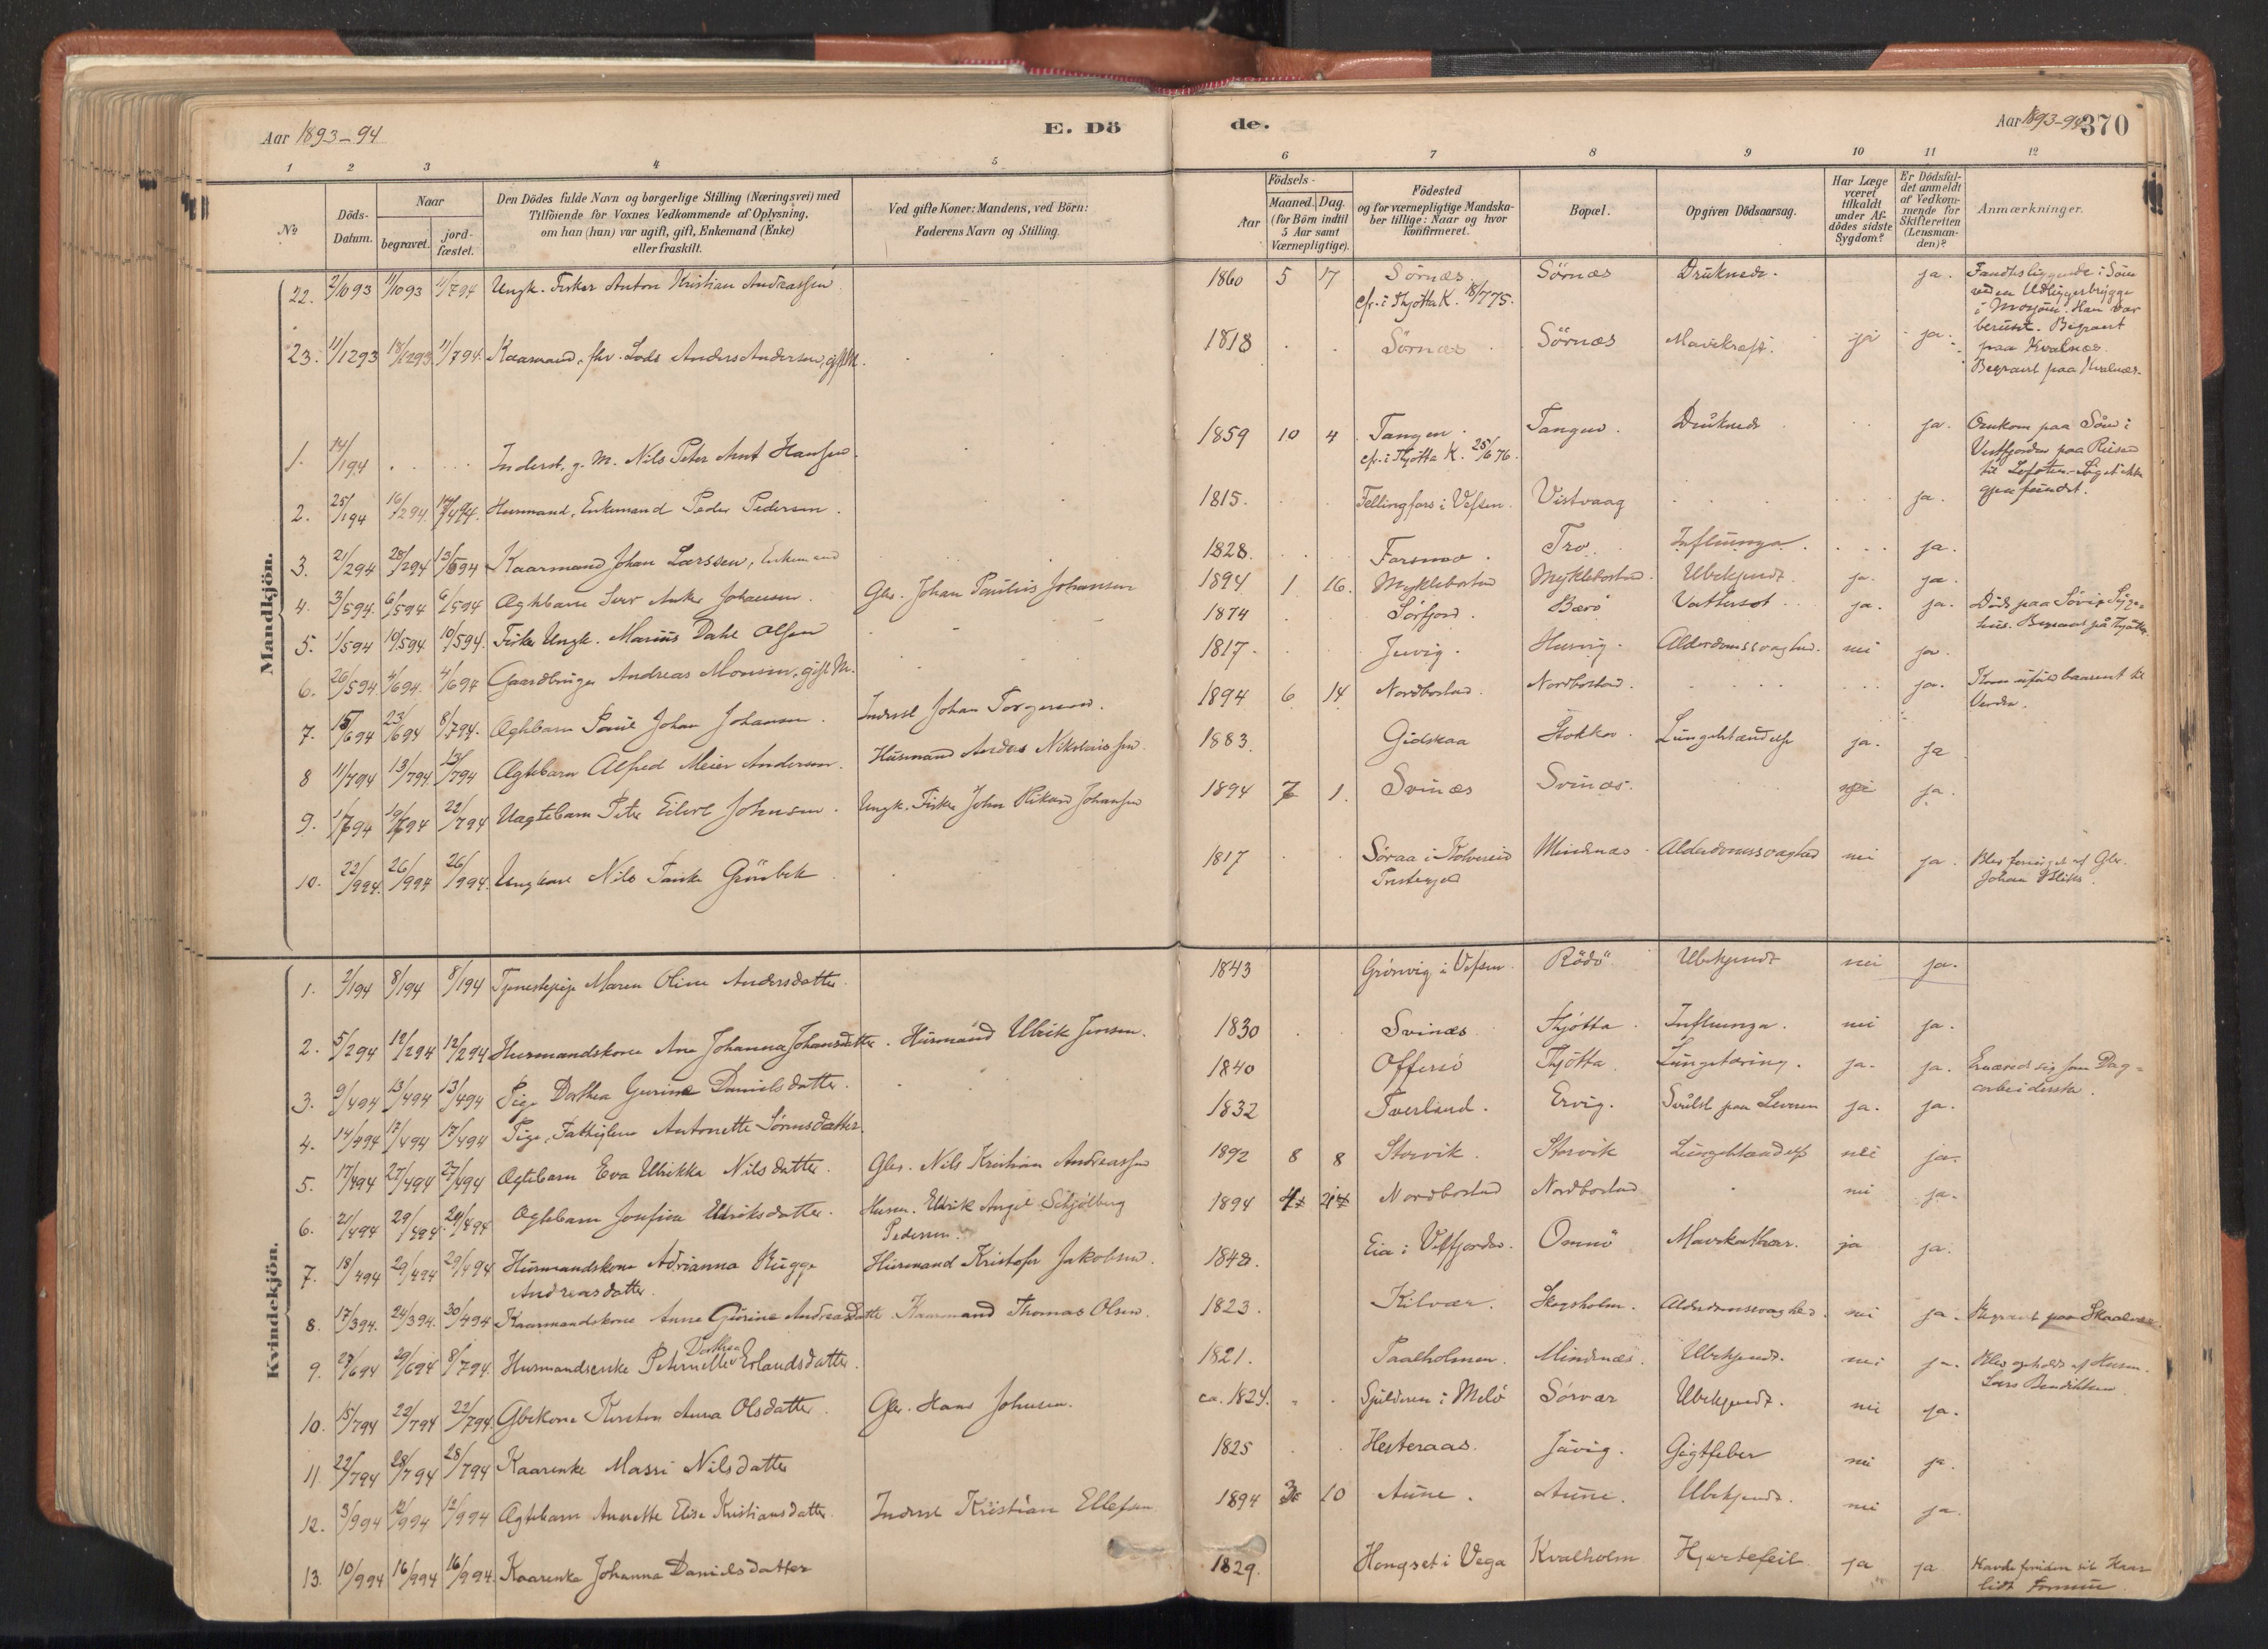 Aar 1893-94
E. Dö
de.
Aar 1893-94 370
1 2 3 4 5 6 7 8 9 10 11 12
No
Döds-Datum.
Naar
begravet.
jord-fæstet.
Den Dödes fulde Navn og borgerlige Stilling (Næringsvei) med
Tilföiende for Voxnes Vedkommende af Oplysning,
om han (hun) var ugift, gift, Enkemand (Enke)
eller fraskilt.
Ved gifte Koner: Mandens, ved Börn:
Faderens Navn og Stilling.
Födsels-
Aar
Maaned. Dag.
(for Börn indtil
5 Aar samt
Værnepligtige).
Födested
og for værnepligtige Mandska-
ber tillige: Naar og hvor
konfirmeret.
Bopæl.
Opgiven Dödsaarsag.
Har Læge
været
tilkaldt
under Af-
dödes sidste
Sygdom?
Er Dödsfal-
det anmeldt
af Vedkom-
mende for
Skifteretten
(Lensman-
den)?
Anmærkninger.
Mandkjön.
22. 2/1093 11/1093 11/794 Ungk. Fisker Anton Kristian Andreassen 1860 5 17 Sörnæs Sörnæs Druknede. ja. Fandtes liggende i Söen
cfr. i Thjøtta K. 18/775. ved en Udliggerbrygge
i Mosjøen. Han var
beruset. Begravet
paa Kvalnæs.
23. 11/1293 18/1293 11/794. Kaarmand, fhv. Lods Anders Andersen, gift M. 1818 Sörnæs Sörnæs Mavekræft. ja ja. Begravet paa Kvalnæs.
1. 14/194 Inderst, g. M. Nils Peter Arnt Hansen. 1859 10 4 Tangen. Tangen. Druknede ja. Omkom paa Søen i
cfr. i Thjøtta K. 25/676. Vestfjorden paa Reisen
til Lofoten. Liget ikke
gjenfundet.
2. 25/194 16/294. 17/494. Husmand, Enkemand Peder Pedersen. 1815. Fellingfors i Vefsen Vistvaag ja.
3. 21/294 28/294 13/594 Kaarmand Johan Larssen, Enkemand 1828. Forsmo. Tro. Influenza. ja.
4. 3/594. 6/594 6/594 Ægtebarn Johansen. Gbr. Johan Paulius Johansen 1894 1 16. Myklebostad Myklebostad. Ubekjendt. ja. ja.
5. 1/594 10/594 10/594. Fisker Ungk. Marius Dahl Olsen 1874 Sørfjord. Bærø Vattersot ja. ja. Død paa Søvig Syge-
hus. Begravet på Thjøtta.
6. 26/594. 4/694. 4/694 Gaardbruger Andreas Monsen, gift M. 1817. Juvig. Husvig. Alderdomssvaghed. nei ja.
7. 15/694 23/694 8/794. Ægtebarn Paul Johan Johansen. Inderst Johan Torgersen. 1894 6 14 Nordbostad. Nordbostad. ja. Kom ufuldbaarent til
Verden.
8 11/794 13/794. 13/794 Ægtebarn Alfred Meier Andersen. Husmand Anders Nikolaissen 1883. Gidskaa Stokka. Lungebetændelse ja. ja
9. 1/794 19/794 22/794 Uægtebarn Peter Eilert Johnsen. Ungk. Fisker John Rikard Johansen 1894 7 1. Svinæs Svinæs. nei ja.
10. 22/994. 26/994 26/994. Ungkarl Nils Tanke Grönbek 1817 Søraa i Kolvereid Mindnæs Alderdomssvaghed nei ja. Blev forsørget af Gbr.
Præstegjeld Johan
Kvindekjön.
1. 2/194 8/194 8/194 Tjenestepige Maren Oline Andersdatter. 1843 Grönvig i Vefsen. Rödö Ubekjendt nei ja.
2. 5/294 12/294 12/294 Husmandskone Ane Johanna Johansdatter. Husmand Ulrik Jensen. 1830 Svinæs Thjøtta. Influenza. nei ja.
3. 9/494 13/494 13/494 Pige Dorthea Gurine Danielsdatter. 1840 Offersø Thjøtta Lungetæring. ja. ja. Ernæred sig som Dag-
arbeiderske.
4. 14/494 17/494 17/494 Pige, Fattiglem Antonette Sørensdatter. 1832 Tverland. Ervig. Svulst paa Leveren ja. ja.
5. 17/494 27/494 27/494 Ægtebarn Eva Ulrikka Nilsdatter. Gbr. Nils Kristian Andreassen 1892 8 8 Storvik. Storvik Lungebetændelse nei ja.
6. 21/494 29/494. 29/494 Ægtebarn Josefine Edriksdatter. Husm. Edrik Angel Schjølberg 1894 4 Nordbostad Nordbostad nei ja.
Pedersen.
7. 18/494 29/494 29/494 Husmandskone Adrianna Rugge Husmand Kristofer Jakobsen. 1848. Eia i Velfjorden. Omnö Mavekatharr. ja ja.
Andreasdatter.
8. 17/394. 24/394. 30/494 Kaarmandskone Anne Gurine Andreasdatter Kaarmand Thomas Olsen. 1823. Kilvær. Skogsholm. Alderdomssvaghed. nei ja. Begravet paa Skaalvær.
9. 27/694 29/694 8/794. Husmandsenke Peternelle Dorthea Erlandsdatter. 1821. Paalholmen. Mindnæs. Ubekjendt. nei ja. Blev opholdt af Husm.
Lars Bendiktsen
10. 15/794 22/794 22/794. Gbrkone Kirsten Anna Olsdatter. Gbr. Hans Johnsen. ca. 1824. Spilderen i Melö Sörvær Ubekjendt. nei ja.
11 22/794 28/794 28/794 Kaarenke Massi Nilsdatter 1825 Hesteraas. Jüvig. Gigtfeber nei ja.
12. 3/994 12/994 12/994 Ægtebarn Anrette Elise Kristiansdatter. Inderst Kristian Ellefsen 1894 3 10 Aune. Aune. Ubekjendt. nei ja.
13. 10/994 16/994 16/994. Kaarenke Johanna Danielsdatter 1829. Hongset i Vega Kvalholm Hjertefeil. ja ja. Havde foruden sit Kaar
lidt Formue